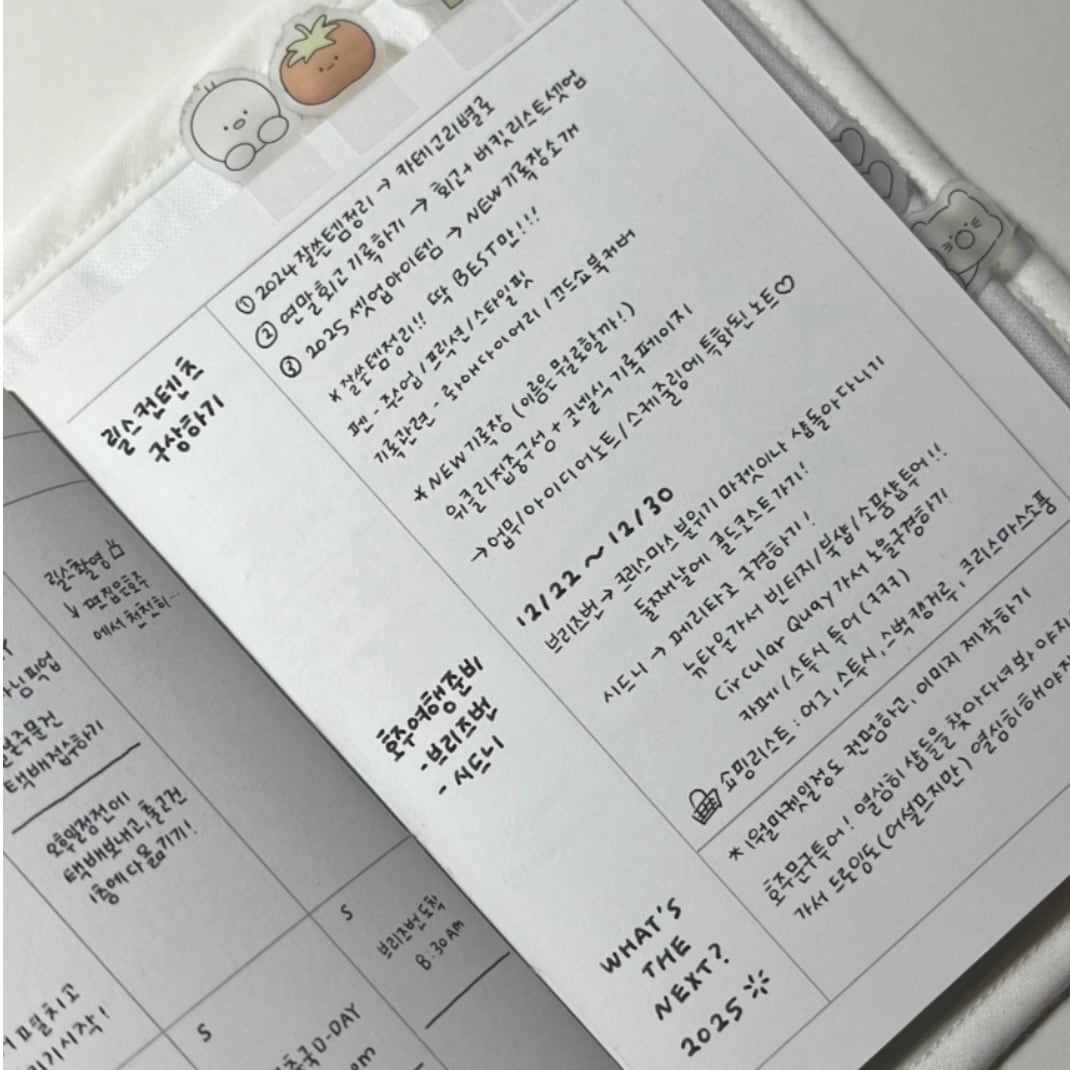 릴스컨텐츠
구상하기
① 2024 잘쓴템정리 → 카테고리별로
② 연말 회고 기록하기 → 회고 + 버킷리스트셋업
③ 2025 셋업아이템 → NEW 기록장소개
* 잘쓴템정리!! 딱 BEST만!!!
펜 - 주스업 / 프릭션 / 스타일핏
기록관련 - 화애다이어리 / 끄드쇼북커버
* NEW 기록장 (이름은 뭘로할까!)
위클리집중구성 + 코넬식 기록페이지
→ 업무/아이디어노트/스케줄링에 특화된 노트♡
호주여행준비
- 브리즈번
- 시드니
12/22 ~ 12/30
브리즈번 → 크리스마스 분위기 마켓이나 샵돌아다니기
둘째날에 골드코스트가기!
시드니 → 페리타고 구경하기!
뉴타운가서 빈티지/북샵/소품샵투어!!
Circular Quay가서 노을구경하기
카페/스톡시 투어 (ㅋㅋㅋ)
쇼핑리스트 : 어그, 스톡시, 스벅캥거루, 크리스마스소품
WHAT'S
THE
NEXT?
2025
* 1월마켓일정도 컨펌하고, 이미지 제작하기
호주문구투어! 열심히 샵들을 찾아다녀봐야지
가서 드로잉도(어설프지만) 열심히해야지
릴스촬영
↳ 편집은호주
에서 천천히...
픽업
택배접수하기
오후일정전에
택배보내고, 출고건
1층에다 옮기기!
S
브리즈번 도착
8:30AM
S
출국 D-DAY